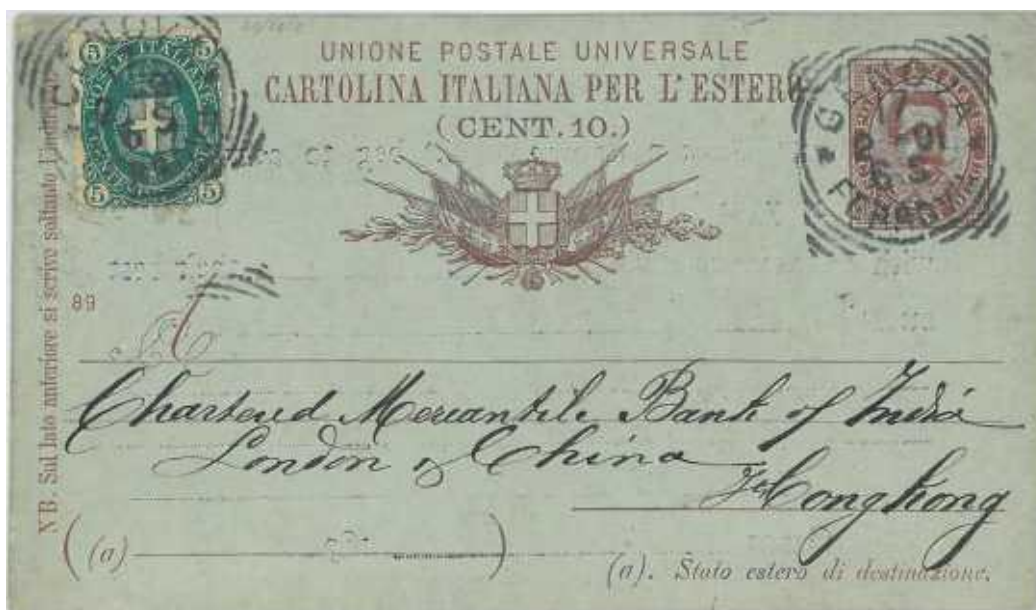 UNIONE POSTALE UNIVERSALE
CARTOLINA ITALIANA PER L'ESTERO
(CENT. 10.)
5 POSTE ITALIANE 5
5 5
FERROVIA
NB. Sul lato anteriore si scrive soltanto l'indirizzo
89
A
Chartered Mercantile Bank of India
London & China
Hongkong
(a)
(a). Stato estero di destinazione.